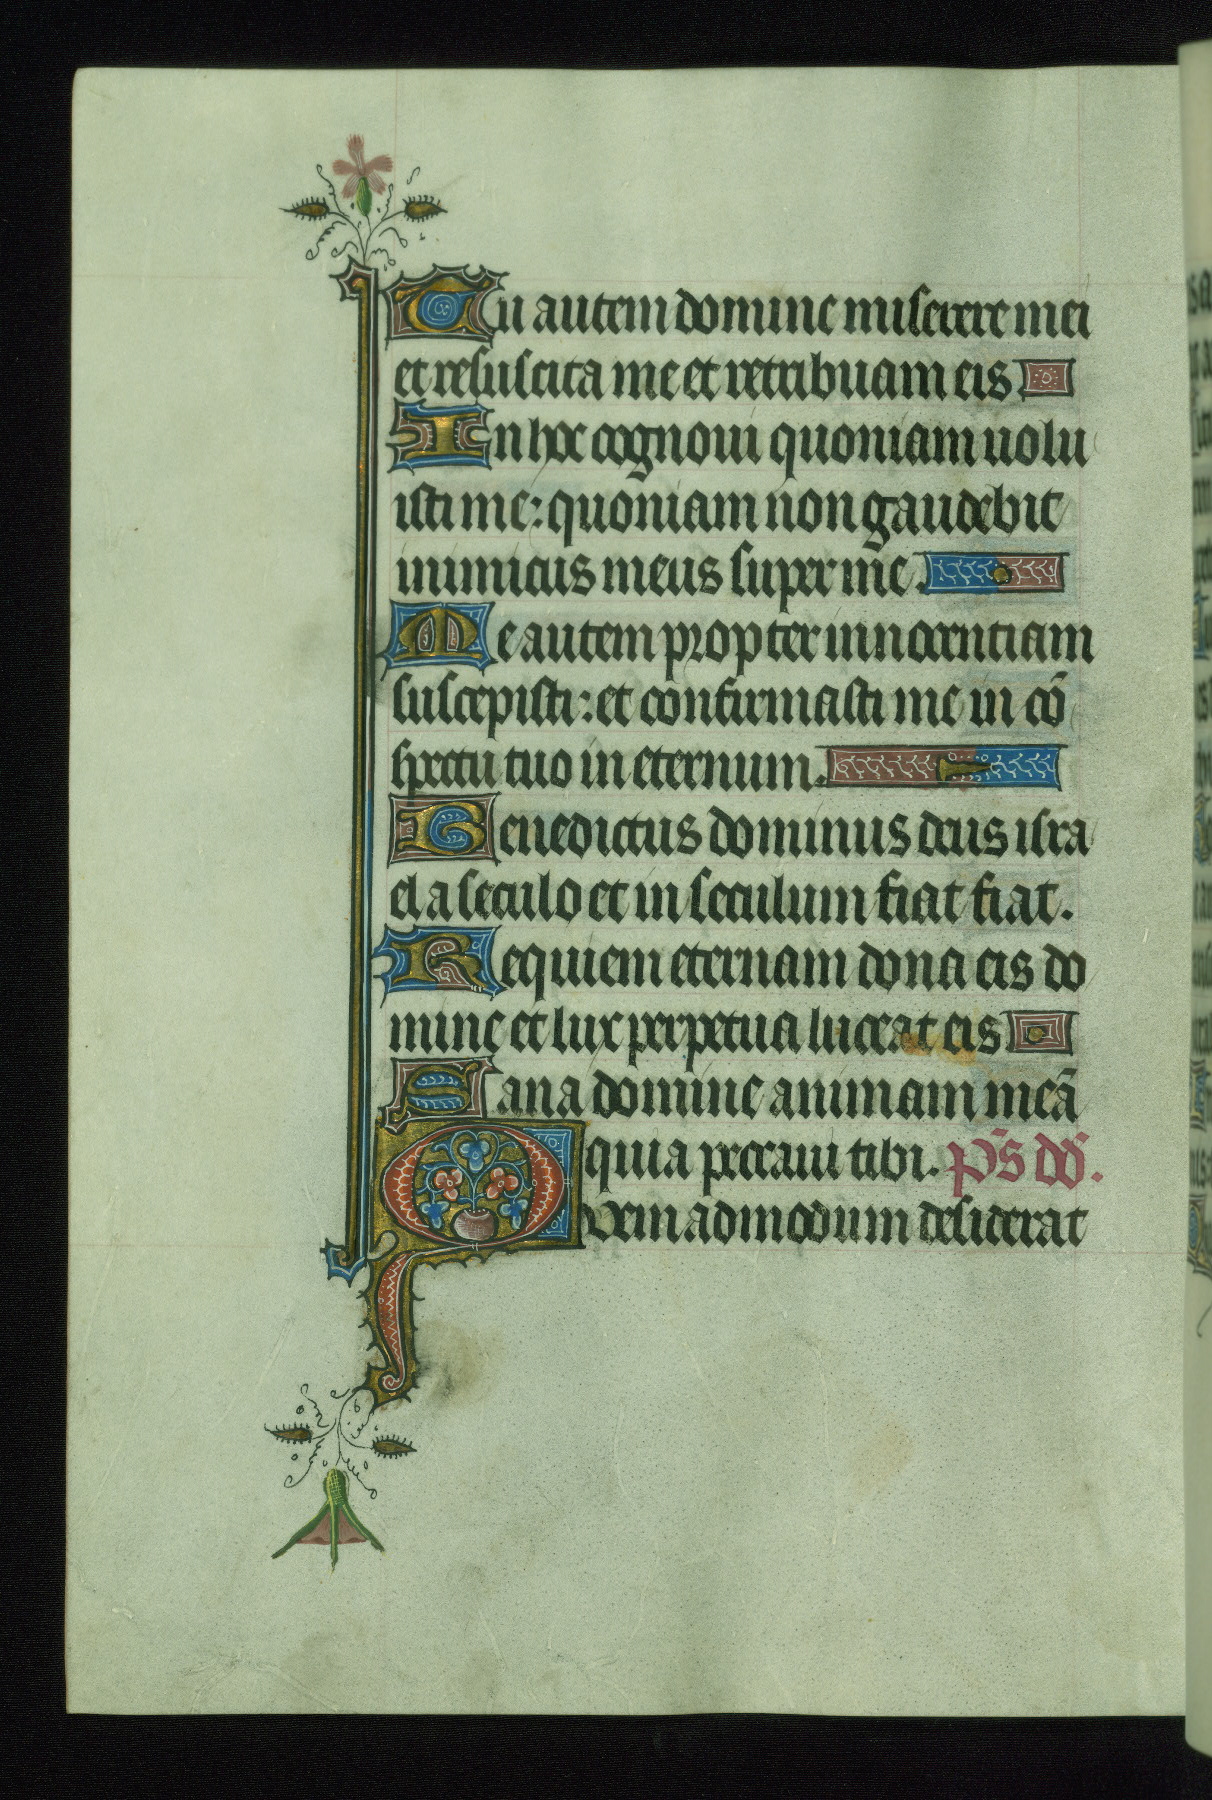 Tu autem domine miserere mei
et resuscita me et retribuam eis
In hoc cognovi quoniam uolu
isti me: quoniam non gaudebit
inimicus meus super me.
Me autem propter innocentiam
suscepisti: et confirmasti me in cō
spectu tuo in eternum.
Benedictus dominus deus isra
el a seculo et in seculum fiat fiat.
Requiem eternam dona eis do
mine et lux perpetua luceat eis
Sana domine animam meā
quia peccaui tibi. p̄s dd̄.
Quem admodum desiderat